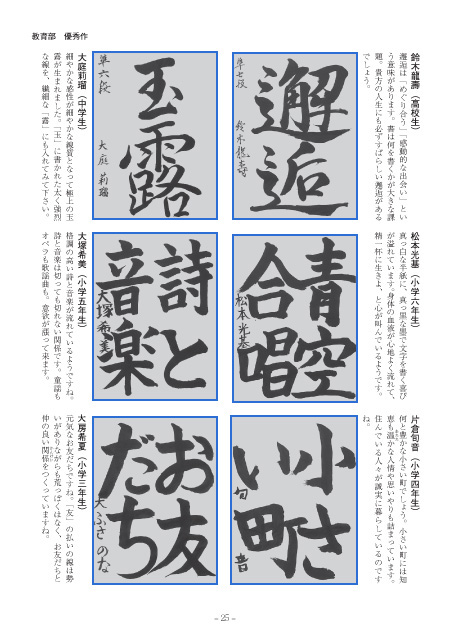 教育部　優秀作
鈴木龍壽（高校生）
邂逅は「めぐり合う」「感動的な出会い」とい
う意味があります。書は何を書くかが大きな課
題。貴方の人生にも必ずすばらしい邂逅がある
でしょう。
邂逅
準七段
鈴木龍壽
玉露
準六段
大庭莉瑠
大庭莉瑠（中学生）
細やかな感性が細やかな線質となって極上の玉
露が生まれました。「玉」に書かれた太く強烈
な線を、繊細な「露」にも入れてみて下さい。
松本光基（小学六年生）
真っ白な半紙に、真っ黒な墨で文字を書く喜び
が溢れています。身体の血液が心地よく流れて、
精一杯に生きよ、と心が叫んでいるようです。
青空
合唱
松本光基
詩と
音楽
大塚希美
大塚希美（小学五年生）
格調の高い詩と音楽が流れているようですね。
詩と音楽は切っても切れない関係です。童謡も
オペラも歌謡曲も。意欲が漲って来ます。
片倉旬音（小学四年生）
何と豊かな小さい町でしょう。小さい町には知
恵も温かな人情や思いやりも詰まっています。
住んでいる人々が誠実に暮らしているのです
ね。
小さ
い町
旬音
お友
だち
大ふさのな
大房希夏（小学三年生）
元気なお友だちですね。「友」の払いの線は勢
いがありながらも荒っぽくはなく、お友だちと
仲の良い関係をつくっていますね。
- 25 -